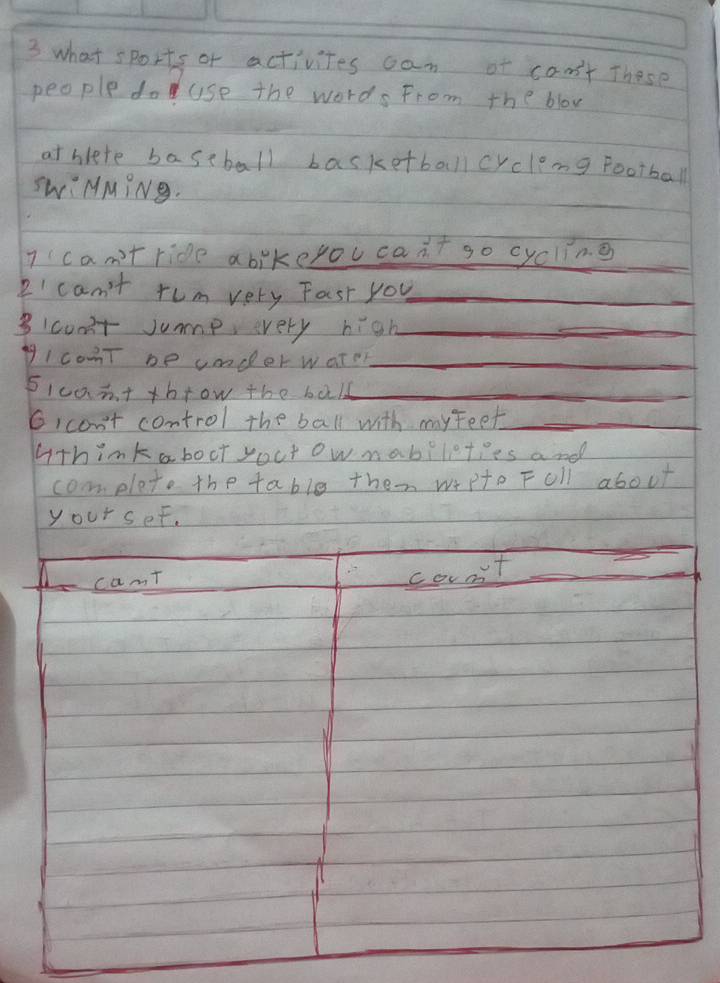 3 what sports or activites can ot can't These
people do? use the words From the blov
at hlete baseball basketball cycling Football
swiMMiNg.
1 I can't ride a bike you can't go cycling
2 I can't rum very Fast you
3 I can't Jumnp, every high
4 I can't be under water
5 I can't throw the ball
6 I can't control the ball with my Feet
4 think aboct yocr ownabiloties and
complete the table then wrpto Foll about
yoursef.
cant can't